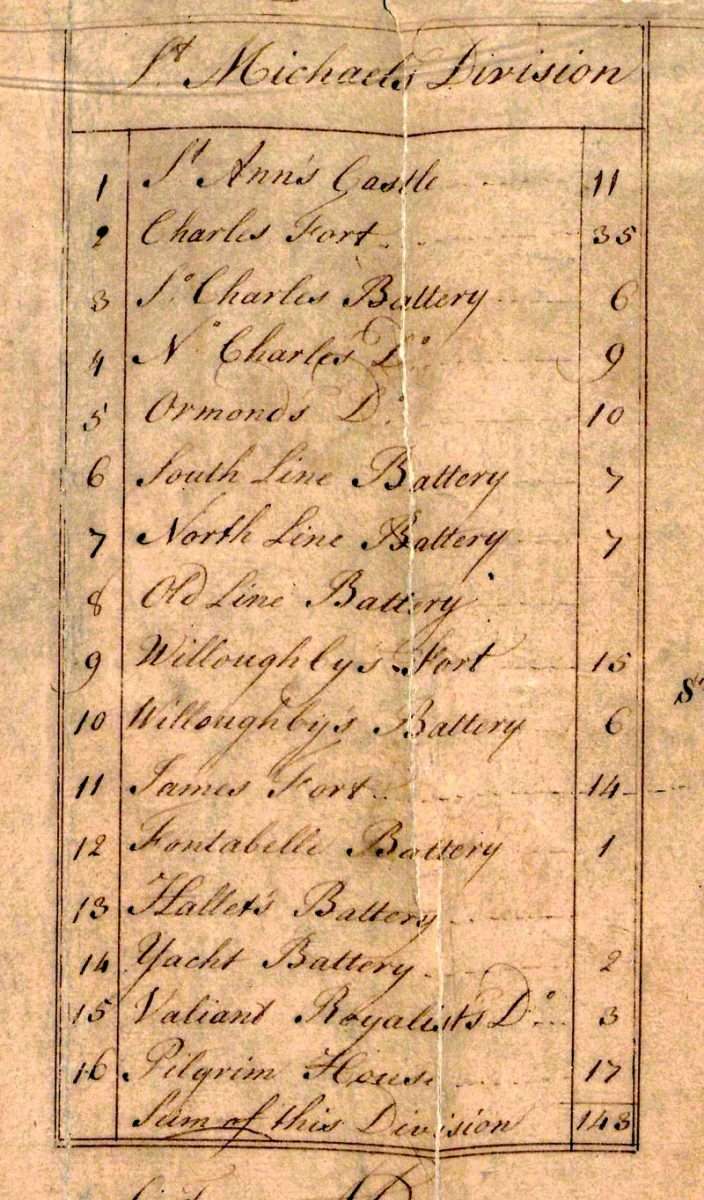 St Michaels Division
1 St Ann's Castle 11
2 Charles Fort 35
3 So. Charles Battery 6
4 No. Charles Do. 9
5 Ormond's Do. 10
6 South Line Battery 7
7 North Line Battery 7
8 Old Line Battery
9 Willoughby's Fort 15
10 Willoughby's Battery 6
11 James Fort 14
12 Fontabelle Battery 1
13 Hallet's Battery
14 Yacht Battery 2
15 Valiant Royalist's Do. 3
16 Pilgrim House 17
Sum of this Division 143